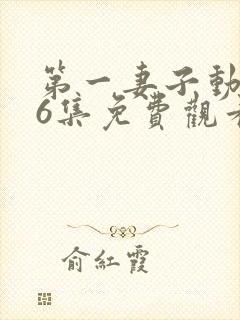 第一妻子動
6集免費觀看
俞紅霞